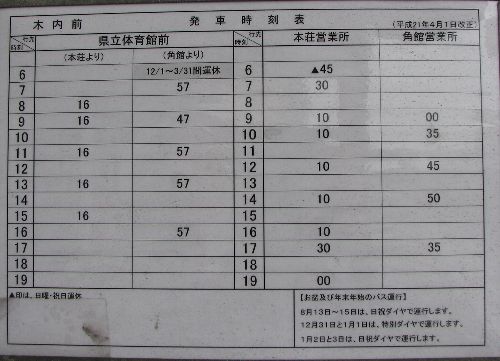 木内前 発車時刻表 (平成21年4月1改正)
時刻 行先 県立体育館前 時刻 行先 本荘営業所 角館営業所
(本荘より) (角館より)
6 12/1～3/31間運休 6 ▲45
7 57 7 30
8 16 8
9 16 47 9 10 00
10 10 10 35
11 16 57 11
12 12 10 45
13 16 57 13
14 14 10 50
15 16 15
16 57 16 10
17 17 30 35
18 18
19 19 00
▲印は、日曜・祝日運休
【お盆及び年末年始のバス運行】
8月13日～15日は、日祝ダイヤで運行します。
12月31日と1月1日は、特別ダイヤで運行します。
1月2日と3日は、日祝ダイヤで運行します。